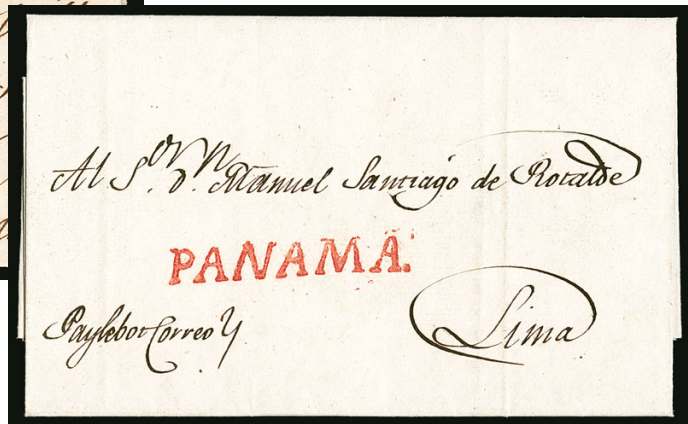 Al S.or d.n Manuel Santiago de Rotalde
PANAMA.
Paylebot Correo
Lima